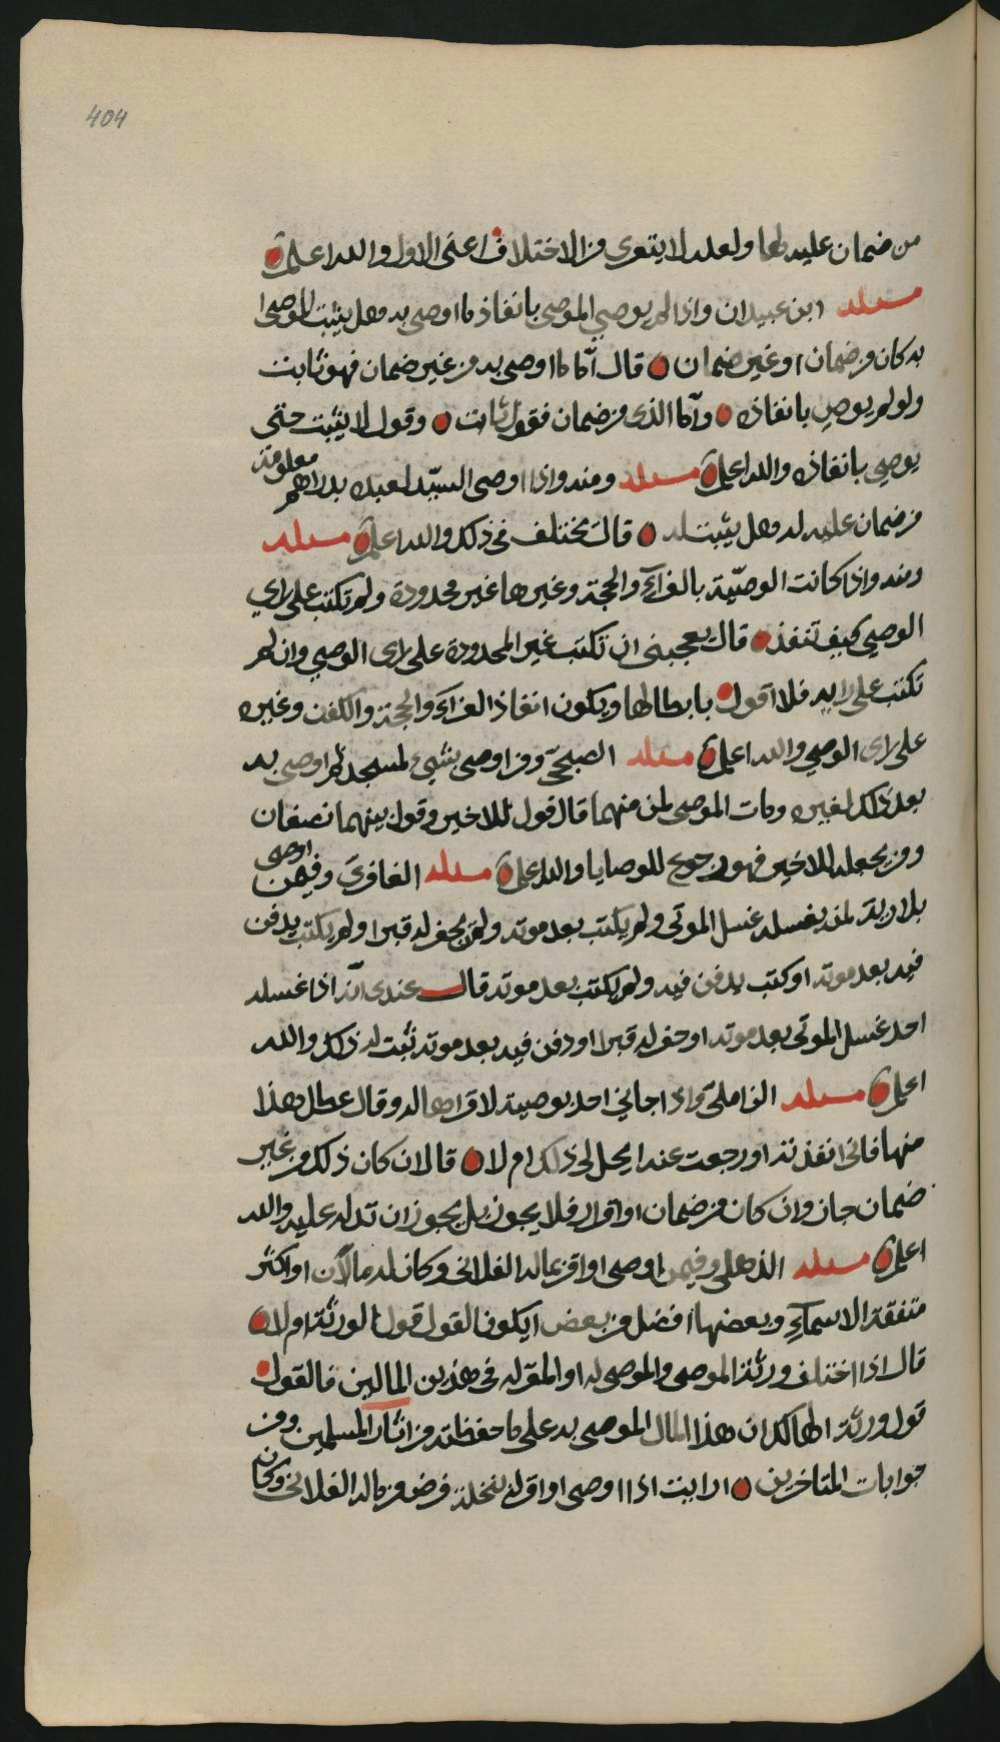 404
من ضمان عليه لها ولعله لا يتعرى من الاختلاف اعنى الاول والله اعلم
مسئله ابن عبيدان واذا لم يوصي الموصى بانفاذ ما اوصى به وهل يثبت للموصى
به كان من ضمان او غير ضمان قال اما ما اوصى به من غير ضمان فهو ثابت
ولو لم يوص بانفاذه واما الذي من ضمان فقول ثابت وقول لا يثبت حتى
يوصي بانفاذه والله اعلم مسئله ومنه واذا اوصى السيد لعبده بدراهم معلومة
من ضمان عليه له وهل يثبت له قال يختلف في ذلك والله اعلم مسئله
ومنه واذا كانت الوصية بالقرآءة والحجة وغيرها غير محدودة ولم تكتب على راي
الوصي كيف تنفذ قال يعجبني ان تكتب غير المحدودة على راى الوصي وان لم
تكتب على رايه فلا اقول بابطالها ويكون انفاذ القراءة والحجة والكفن وغيره
على راى الوصي والله اعلم مسئله الصبحي ومن اوصى بشيء لمسجد ثم اوصى به
بعد ذلك لغيره ومات الموصى لمن منهما قال قول للاخير وقول بينهما نصفان
ومن يجعله للاخير فهو رجوع للوصايا والله اعلم مسئله الغافري وفيمن اوصى
بلاربة لمن يغسله غسل الموتى ولم يكتب بعد موته ولمن يحفر له قبرا ولم يكتب يدفن
فيه بعد موته او كتب يدفن فيه ولم يكتب بعد موته قال عندى انه اذا غسله
احد غسل الموتى بعد موته او حفر له قبرا ودفن فيه بعد موته ثبت له ذلك والله
اعلم مسئله الزاملي واذا جاني احد بوصية لاقراها له وقال عطل هذا
منها فاني انفذته او رجعت عنه ايحل لي ذلك ام لا قال ان كان ذلك من غير
ضمان جاز وان كان من ضمان او اقرار فلا يجوز بل يجوز ان تدله عليه والله
اعلم مسئله الذهلي وفيمن اوصى او اقر بماله الفلاني وكان له مالان او اكثر
متفقة الاسماء وبعضها افضل من بعض ايكون القول قول الورثة ام لا
قال اذا اختلف ورثة الموصى والموصى له او المقر له في هذين المالين فالقول
قول ورثة الهالك ان هذا المال الموصى به على ما حفظته من اثار المسلمين ومن
جوابات المتاخرين ارايت اذا اوصى او اقر له بنخلة فرض من ماله الفلاني وكان